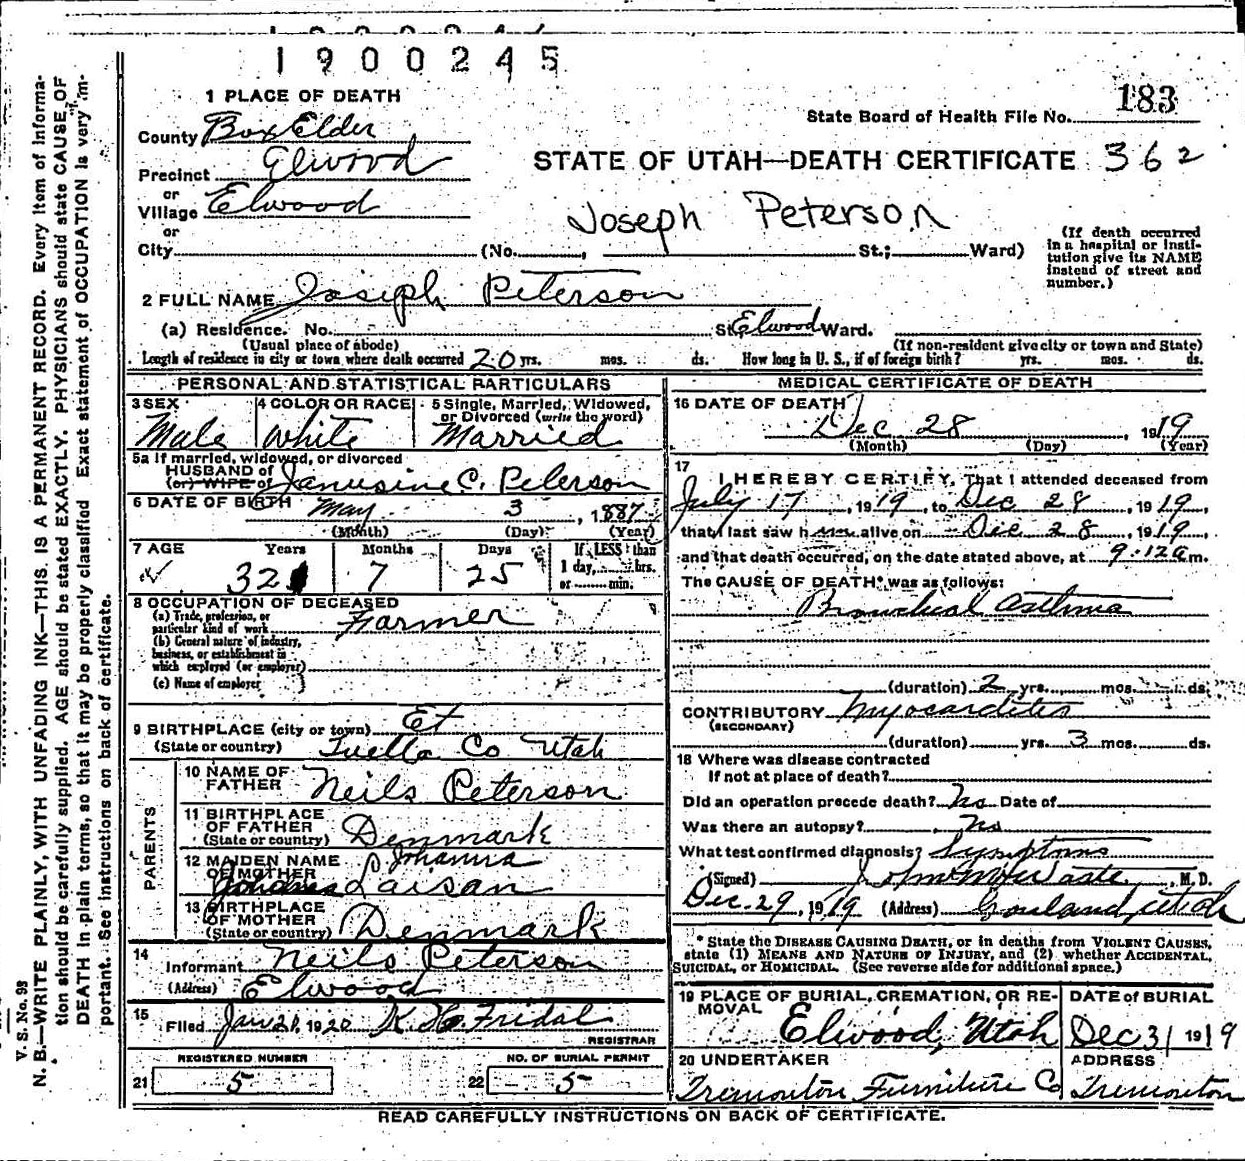 1900245
1 PLACE OF DEATH
183
State Board of Health File No.
County Box Elder
STATE OF UTAH—DEATH CERTIFICATE 362
Precinct Elwood
or
Village Elwood
or
Joseph Peterson
City (No. , St.; Ward)
(If death occurred
in a hospital or insti-
tution give its NAME
instead of street and
number.)
2 FULL NAME Joseph Peterson
(a) Residence. No. St. Elwood Ward.
(Usual place of abode) (If non-resident give city or town and State)
Length of residence in city or town where death occurred 20 yrs. mos. ds. How long in U. S., if of foreign birth? yrs. mos. ds.
PERSONAL AND STATISTICAL PARTICULARS
3 SEX 4 COLOR OR RACE 5 Single, Married, Widowed,
or Divorced (write the word)
Male White Married
5a If married, widowed, or divorced
HUSBAND of
(or) WIFE of Janusine C. Peterson
6 DATE OF BIRTH May 3, 1887
(Month) (Day) (Year)
7 AGE Years Months Days If LESS than
1 day, hrs.
or min.
32 7 25
8 OCCUPATION OF DECEASED
(a) Trade, profession, or
particular kind of work Farmer
(b) General nature of industry,
business, or establishment in
which employed (or employer)
(c) Name of employer
9 BIRTHPLACE (city or town) Et
(State or country) Tuella Co Utah
PARENTS
10 NAME OF
FATHER Neils Peterson
11 BIRTHPLACE
OF FATHER
(State or country) Denmark
12 MAIDEN NAME
OF MOTHER Johanna
Laisan
13 BIRTHPLACE
OF MOTHER
(State or country) Denmark
14
Informant Neils Peterson
(Address) Elwood
15
Filed Jan 21, 1920 K. H. Fridal
REGISTRAR
REGISTERED NUMBER NO. OF BURIAL PERMIT
21 5 22 5
MEDICAL CERTIFICATE OF DEATH
16 DATE OF DEATH
Dec 28, 1919
(Month) (Day) (Year)
17
I HEREBY CERTIFY, That I attended deceased from
July 17, 1919, to Dec 28, 1919,
that I last saw him alive on Dec 28, 1919,
and that death occurred, on the date stated above, at 9.12a m.
The CAUSE OF DEATH* was as follows:
Bronchial Asthma
(duration) 2 yrs. mos. ds.
CONTRIBUTORY Myocarditis
(SECONDARY)
(duration) yrs. 3 mos. ds.
18 Where was disease contracted
If not at place of death?
Did an operation precede death? No Date of
Was there an autopsy? No
What test confirmed diagnosis? Symptoms
(Signed) , M. D.
Dec. 29, 1919 (Address) Garland, Utah
* State the DISEASE CAUSING DEATH, or in deaths from VIOLENT CAUSES,
state (1) MEANS AND NATURE OF INJURY, and (2) whether ACCIDENTAL,
SUICIDAL, or HOMICIDAL. (See reverse side for additional space.)
19 PLACE OF BURIAL, CREMATION, OR RE-
MOVAL
Elwood, Utah
DATE of BURIAL
Dec 31 1919
20 UNDERTAKER
Tremonton Furniture Co
ADDRESS
Tremonton
READ CAREFULLY INSTRUCTIONS ON BACK OF CERTIFICATE.
V. S. No. 98
N. B.—WRITE PLAINLY, WITH UNFADING INK—THIS IS A PERMANENT RECORD. Every item of informa-
tion should be carefully supplied. AGE should be stated EXACTLY. PHYSICIANS should state CAUSE OF
DEATH in plain terms, so that it may be properly classified. Exact statement of OCCUPATION is very im-
portant. See instructions on back of certificate.